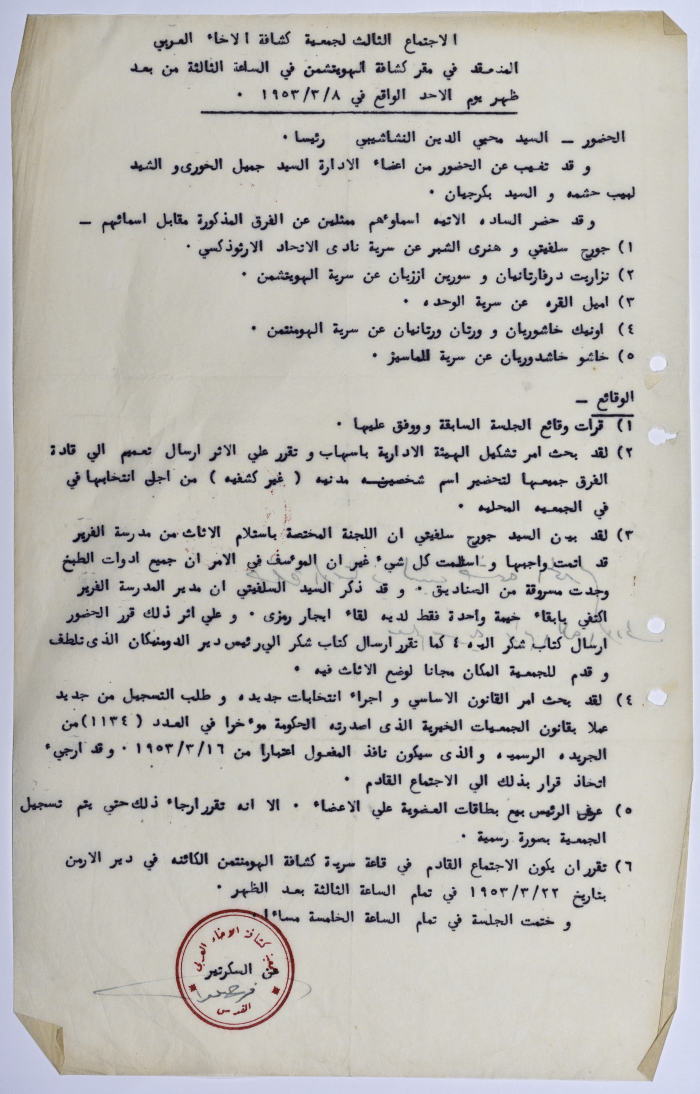 الاجتماع الثالث لجمعية كشافة الاخاء العربي
المنعقد في مقر كشافة الهويتشمن في الساعة الثالثة من بعد
ظهر يوم الاحد الواقع في ١٩٥٣/٣/٨ ٠
الحضور – السيد محيي الدين النشاشيبي رئيسا ٠
و قد تغيب عن الحضور من اعضاء الادارة السيد جميل الخورى و الشيد
لبيب حشمه و السيد بكرجيان ٠
و قد حضر الساده الاتيه اسماوءهم ممثلين عن الفرق المذكورة مقابل اسمائهم –
١) جورج سلفيتي و هنرى الشبر عن سرية نادى الاتحاد الارثوذكسي ٠
٢) نزاريت درفارتانيان و سورين اززيان عن سرية الهويتشمن ٠
٣) اميل القره عن سرية الوحده ٠
٤) اونيك خاشوريان و ورتان ورتانيان عن سرية الهومنتمن ٠
٥) خاشو خاشدوريان عن سرية للماسيز ٠
الوقائع –
١) قرات وقائع الجلسة السابقة و ووفق عليها ٠
٢) لقد بحث امر تشكيل الهيئة الادارية باسهاب و تقرر علي الاثر ارسال تعميم الي قادة
الفرق جميعها لتحضير اسم شخصين مدنيه ( غير كشفيه ) من اجل انتخابها في
في الجمعيه المحليه ٠
٣) لقد بين السيد جورج سلفيتي ان اللجنة المختصة باستلام الاثاث من مدرسة الفرير
قد اتمت واجبها و استلمت كل شيء غير ان الموءسف في الامر ان جميع ادوات الطبخ
وجدت مسروقة من الصناديق ٠ و قد ذكر السيد السلفيتي ان مدير المدرسة الفرير
اكتفي بابقاء خيمة واحدة فقط لديه لقاء ايجار رمزى ٠ و علي اثر ذلك قرر الحضور
ارسال كتاب شكر اليه ٤ كما تقرر ارسال كتاب شكر الي رئيس دير الدومنيكان الذى تلطف
و قدم للجمعية المكان مجانا لوضع الاثاث فيه ٠
٤) لقد بحث امر القانون الاساسي و اجراء انتخابات جديده و طلب التسجيل من جديد
عملا بقانون الجمعيات الخيرية الذى اصدرته الحكومة موءخرا في العدد ( ١١٣٤) من
الجريده الرسميه و الذى سيكون نافذ المفعول اعتبارا من ١٩٥٣/٣/١٦ ٠ و قد ارجيء
اتخاذ قرار بذلك الي الاجتماع القادم ٠
٥) عرض الرئيس بيع بطاقات العضوية علي الاعضاء ٠ الا انه تقرر ارجاء ذلك حتي يتم تسجيل
الجمعية بصورة رسمية ٠
٦) تقرر ان يكون الاجتماع القادم في قاعة سريدة كشافة الهومنتمن الكائنه في دير الارمن
بتاريخ ١٩٥٣/٣/٢٢ في تمام الساعة الثالثة بعد الظهر ٠
و ختمت الجلسة في تمام الساعة الخامسة مساءا ٠
كشافة الاخاء العربي
عن السكرتير
القدس